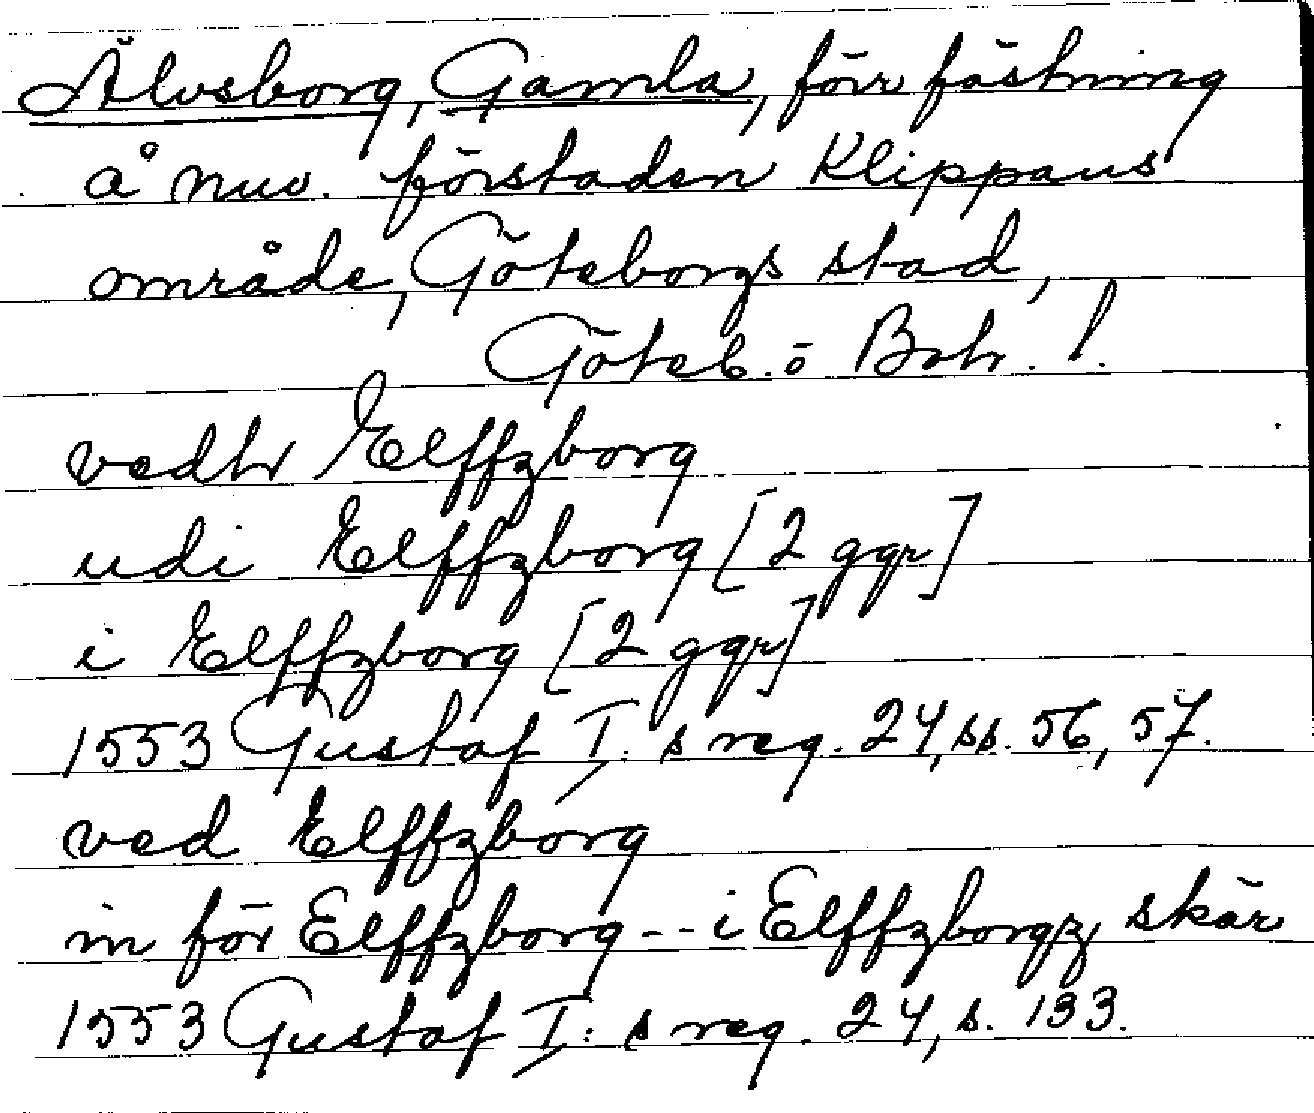 Älvsborg, Gamla, förr fästning
å nuv. förstaden Klippans
område, Göteborgs stad,
Göteb. o Boh. l.
vedtr Elffzborg
udi Elffzborg [2 ggr]
i Elffzborg [2 ggr]
1553 Gustaf I: s reg. 24, ss. 56, 57.
ved Elffzborg
in för Elffzborg -- i Elffzborgz skär
1553 Gustaf I: s reg. 24, s. 133.